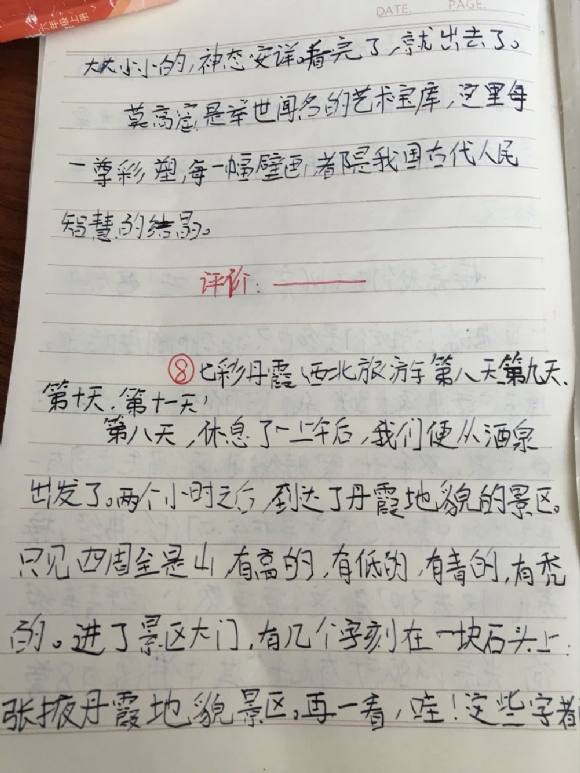 六年级上册
DATE PAGE
大大小小的,神态安详。看完了,就出去了。
莫高窟,是举世闻名的艺术宝库,这里每
一尊彩塑,每一幅壁画,都是我国古代人民
智慧的结晶。
评价:
⑧七彩丹霞(西北旅游车第八天、第九天、
第十天,第十一天)
第八天,休息了一上午后,我们便从酒泉
出发了。两个小时之后,到达了丹霞地貌的景区。
只见四周全是山,有高的,有低的,有青的,有秃
的。进了景区大门,有几个字刻在一块石头上:
张掖丹霞地貌景区。再一看,哇!这些字都